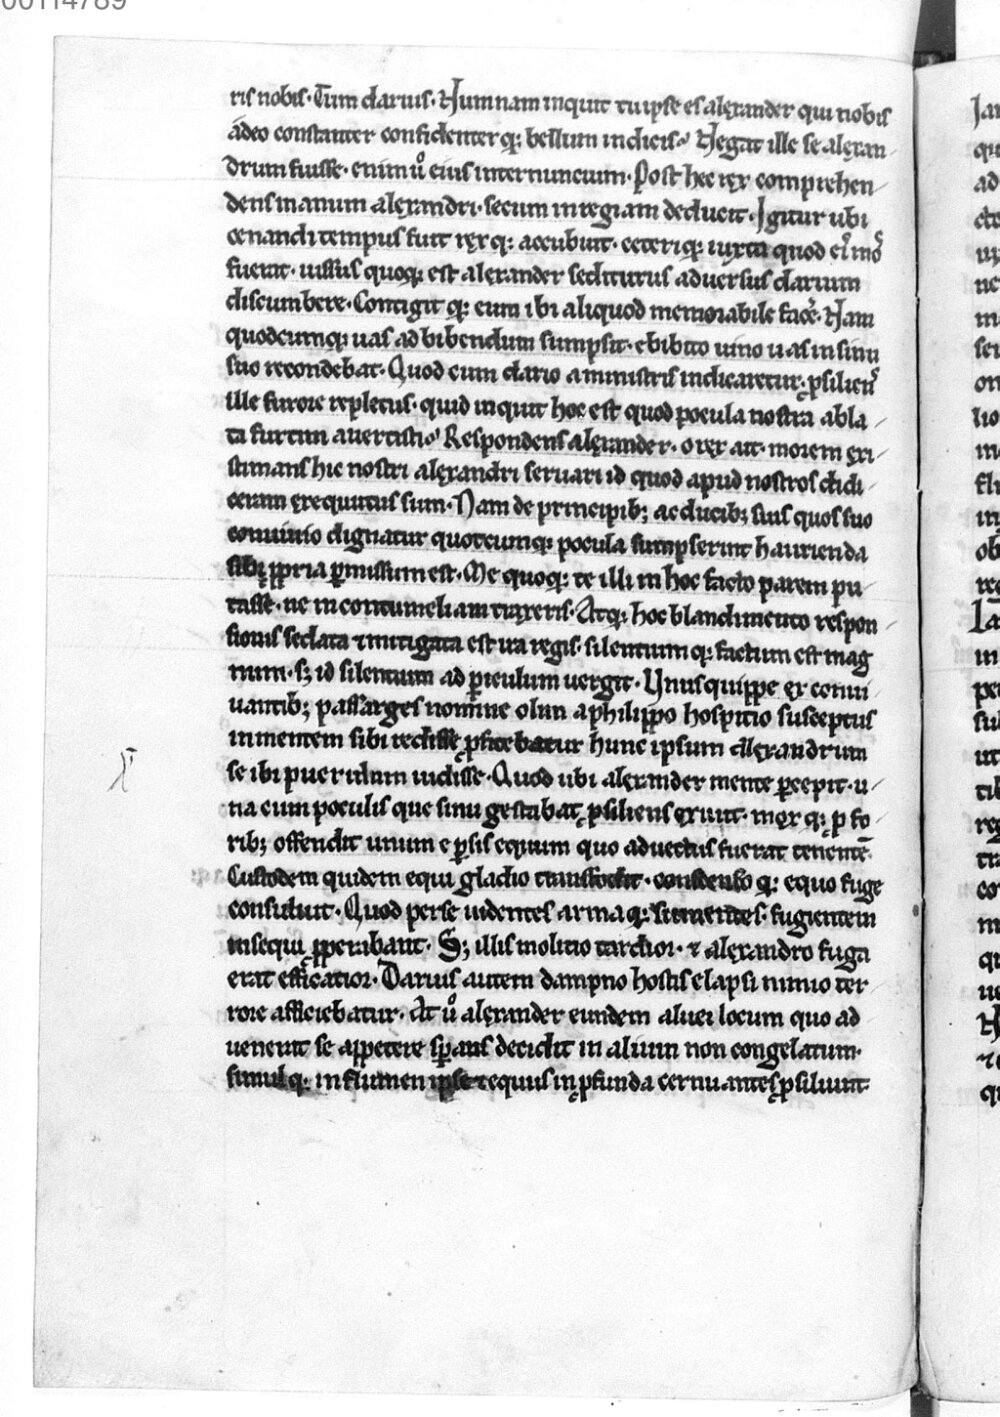 00114789
ris nobis. Tum darius. Numnam inquit tu ipse es alexander qui nobis
adeo constanter confidenterq; bellum indicis? Negat ille se alexan
drum fuisse. enim ůo eius internuncium. Post hec rex comprehen
dens manum alexandri. secum in regiam deducit. Igitur ubi
cenandi tempus fuit rexq; accubuit. ceteriq; iuxta quod
fuerat. uissus quoq; est alexander sediturus aduersus darium
discumbere. Contigit q; eum ibi aliquod memorabile facẽ. Nam
quodcumq; uas ad bibendum sumpsit. ebibito uino uas in sinu
suo recondebat. Quod cum dario a ministris indicaretur. ꝓsilieñ
ille furore repletus. quid inquit hoc est quod pocula nostra abla
ta furtim auertisti? Respondens alexander. o rex ait. morem exi
stimans hic nostri alexandri seruari id quod apud nostros didi
ceram exequutus sum. Nam de principib; ac ducib; suis quos suo
conuiuio dignatur quotcumq; pocula sumpserint haurienda
sibi ꝓpria ꝑmissum est. Me quoq; te illi in hoc facto parem pu
tasse. ne in contumeliam traxeris. Atq; hoc blandimento respon
sionis sedata ⁊ mitigata est ira regis. silentium q; factum est mag
num. s; id silentium ad ꝑiculum uergit. Unus quippe ex conui
uantib; passarges nomine olim a philippo hospitio susceptus
in mentem sibi redisse ꝓfitebatur hunc ipsum alexandrum
se ibi puerulum uidisse. Quod ubi alexander mente ꝑcepit. u
na cum poculis que sinu gestabat ꝓsiliens exiuit. mox q; p̱ fo
rib; offendit unum e ꝑsis equum quo aduectus fuerat tenentẽ.
Custodem quidem equi gladio transfodit. conscenso q; equo fuge
consuluit. Quod perse uidentes arma q; sumentes. fugientem
insequi ꝓperabant. S; illis molitio tardior. ⁊ alexandro fuga
erat efficatior. Darius autem dampno hostis elapsi nimio ter
rore afficiebatur. At ůo alexander eundem aluei locum quo ad
uenerit se appetere sꝑans decidit in alium non congelatum.
simul q; in flumen ipse ⁊ equus in ꝓfunda cernuantes ꝓsiluunt.